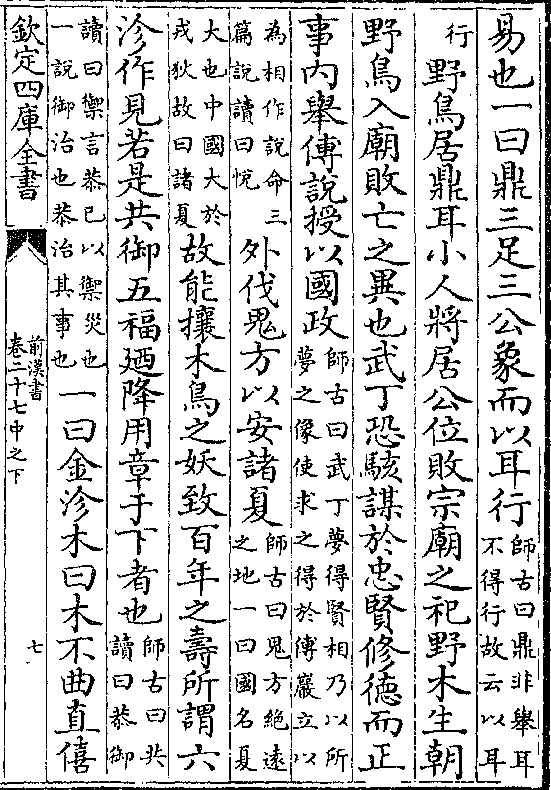 易也一曰鼎三足三公象而以耳行師古曰鼎非舉耳不得行故云以耳
行野鳥居鼎耳小人將居公位敗宗廟之祀野木生朝
野鳥入廟敗亡之異也武丁恐駭謀於忠賢修德而正
事内舉傅說授以國政師古曰武丁夢得賢相乃以所夢之像使求之得於傅巖立以
為相作說命三篇說讀曰悅外伐鬼方以安諸夏師古曰鬼方絶遠之地一曰國名夏
大也中國大於戎狄故曰諸夏故能攘木鳥之妖致百年之壽所謂六
沴作見若是共御五福廼降用章于下者也師古曰共讀曰恭御
讀曰禦言恭己以禦災也一說御治也恭治其事也一曰金沴木曰木不曲直僖
欽定四庫全書
前漢書
卷二十七中之下
七